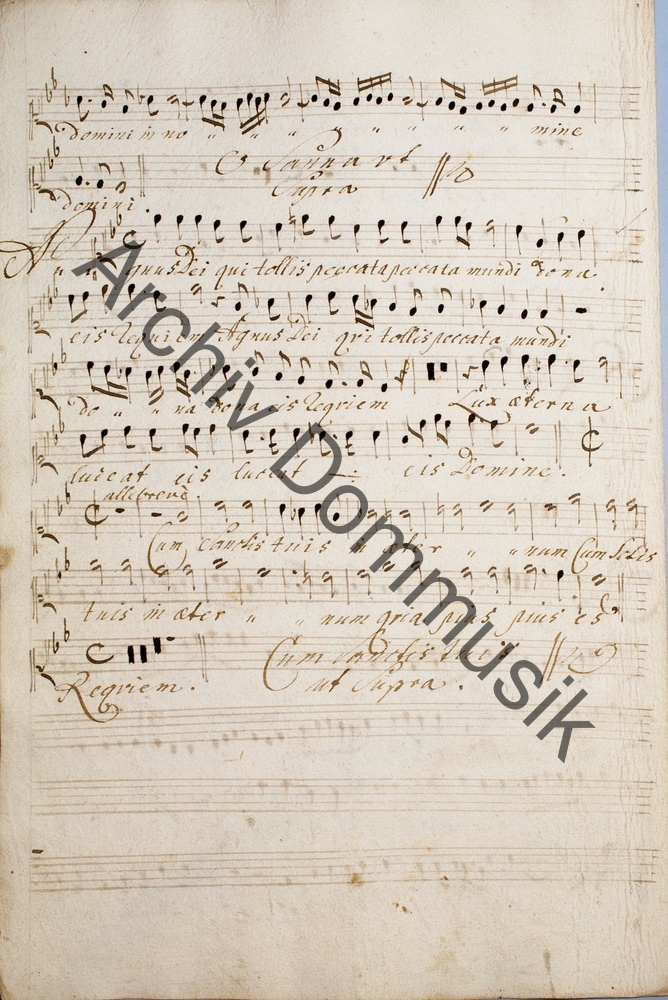 domini in no " " " " " " " " mine
O Sanna ut
domini. Supra
Agnus Dei qui tollis peccata peccata mundi dona
eis requiem Agnus Dei qui tollis peccata mundi
do " " na dona eis requiem Lux æterna
luceat eis luceat eis Domine.
allebreve.
Cum Sanctis tuis in æter " " num Cum Sctis
tuis in æter " " num quia pius pius es
Requiem. Cum Sanctis tuis
ut Supra.
Archiv Dommusik